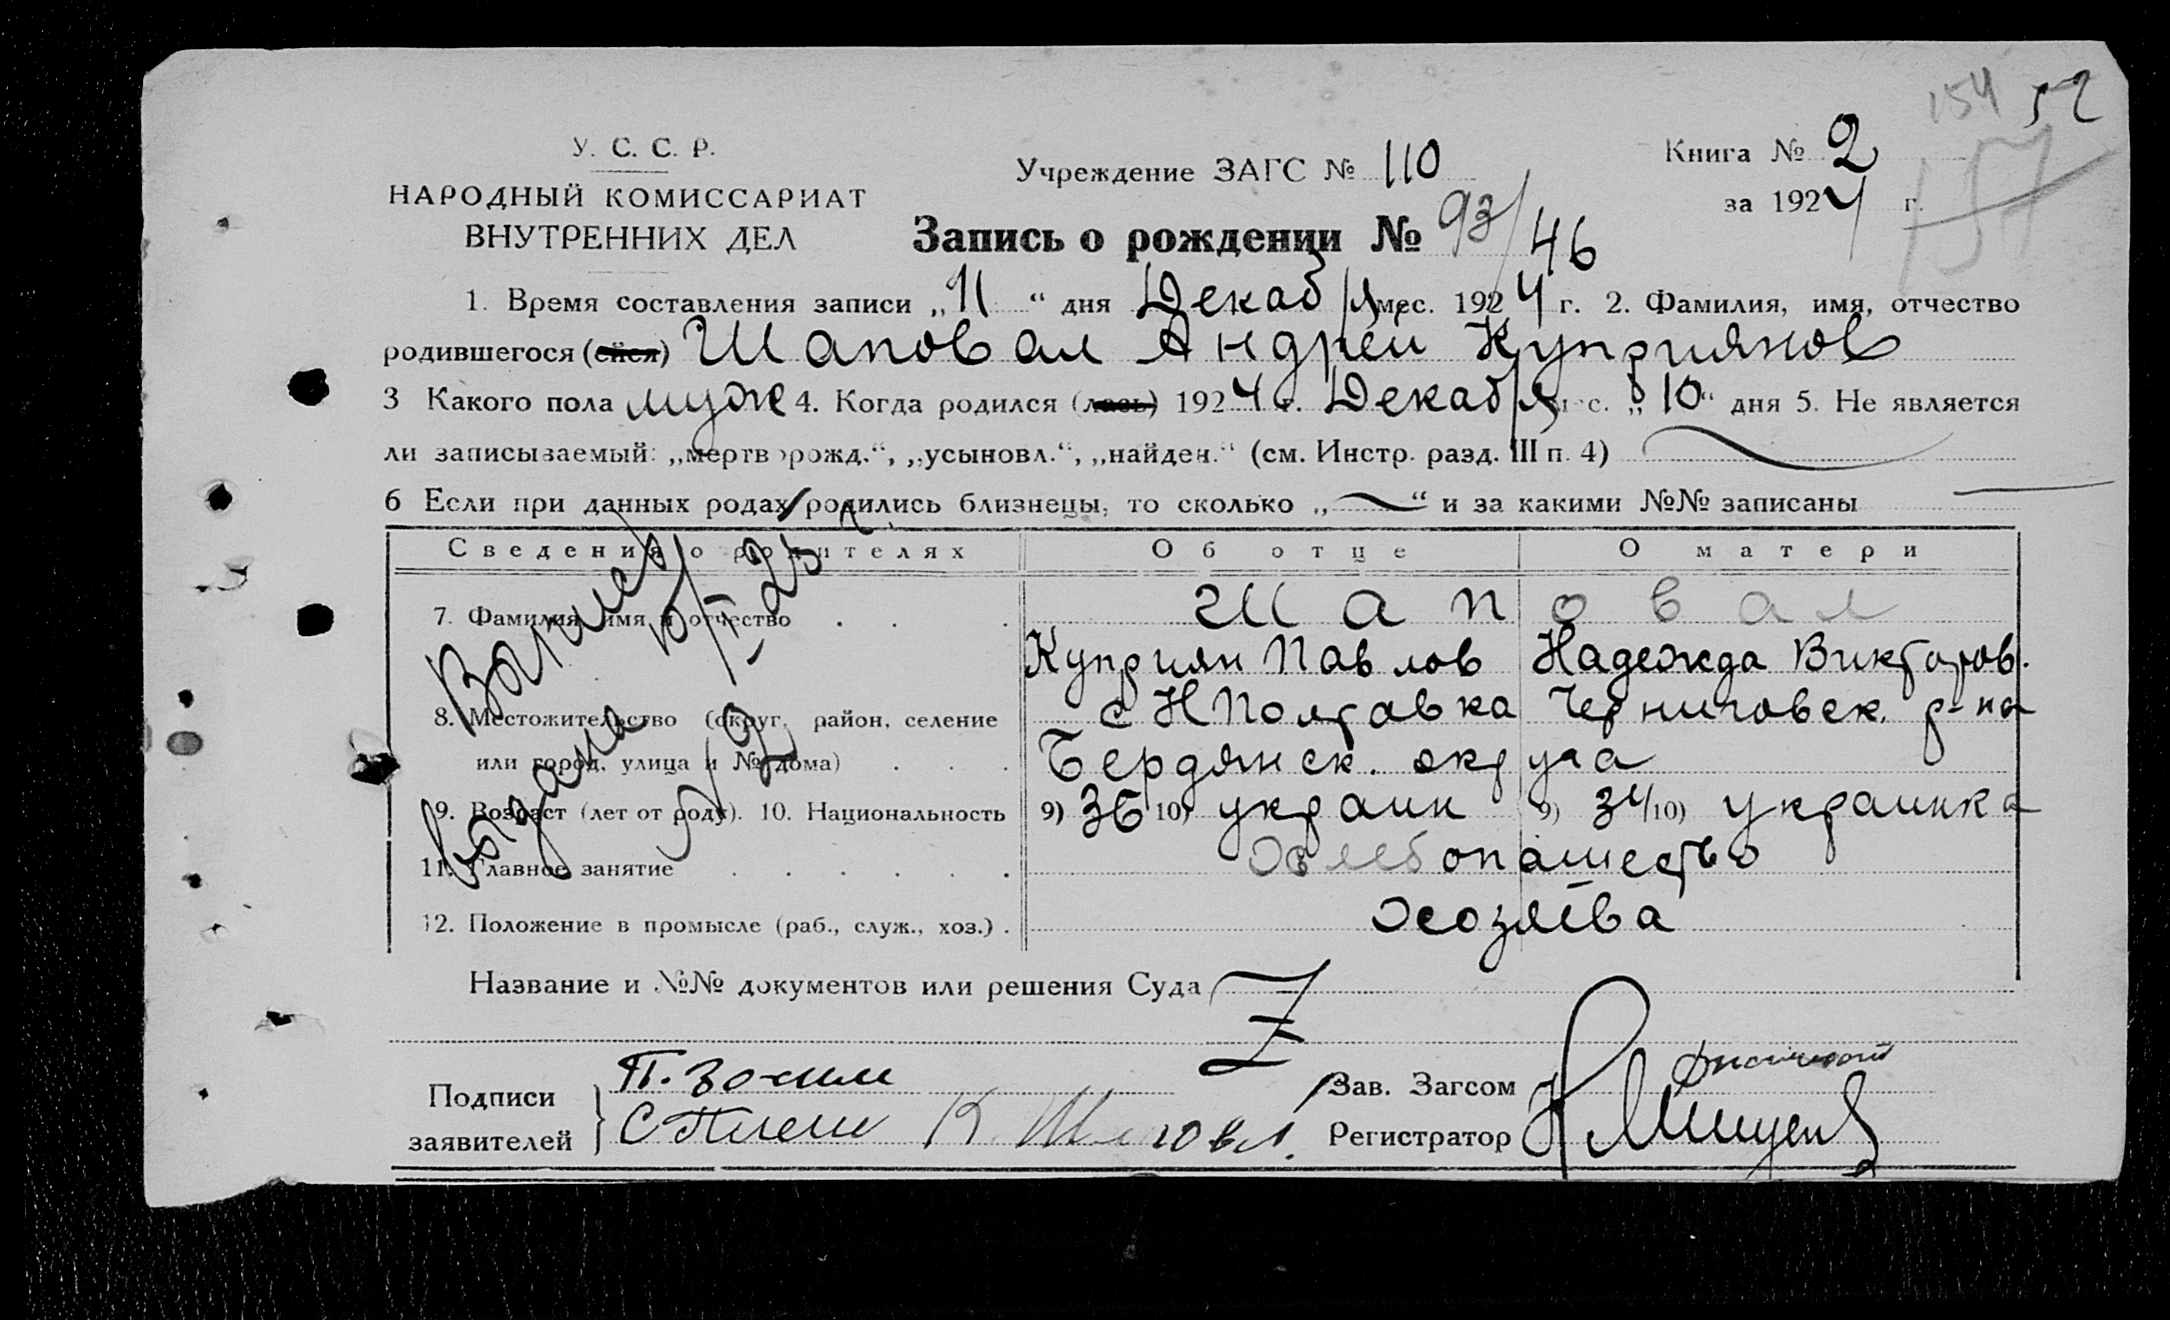 154 52
157
У. С. С. Р.
НАРОДНЫЙ КОМИССАРИАТ
ВНУТРЕННИХ ДЕЛ
Учреждение ЗАГС № 110
Книга № 2
за 1924 г.
Запись о рождении № 93/46
1. Время составления записи „11“ дня Декабря мес. 1924 г. 2. Фамилия, имя, отчество
родившегося (ейся) Шаповал Андрей Куприянов
3 Какого пола муж 4. Когда родился (лась) 1924 г. Декабря мес. „10“ дня 5. Не является
ли записываемый: „мертворожд.“, „усыновл.“, „найден.“ (см. Инстр. разд. III п. 4)
6 Если при данных родах родились близнецы, то сколько „—“ и за какими №№ записаны
Сведения о родителях Об отце О матери
7. Фамилия, имя и отчество Шаповал
Куприян Павлов Надежда Викторов.
8. Местожительство (округ, район, селение с НПолтавка Черниговск. р-на
или город, улица и № дома) Бердянск. округа
9. Возраст (лет от роду). 10. Национальность 9) 36 10) украин 9) 34 10) украинка
11. Главное занятие Хлебопашество
12. Положение в промысле (раб., служ., хоз.) Хозяева
Выпись
выдана
Название и №№ документов или решения Суда
Подписи
заявителей
К. Шаповал.
Зав. Загсом
Регистратор